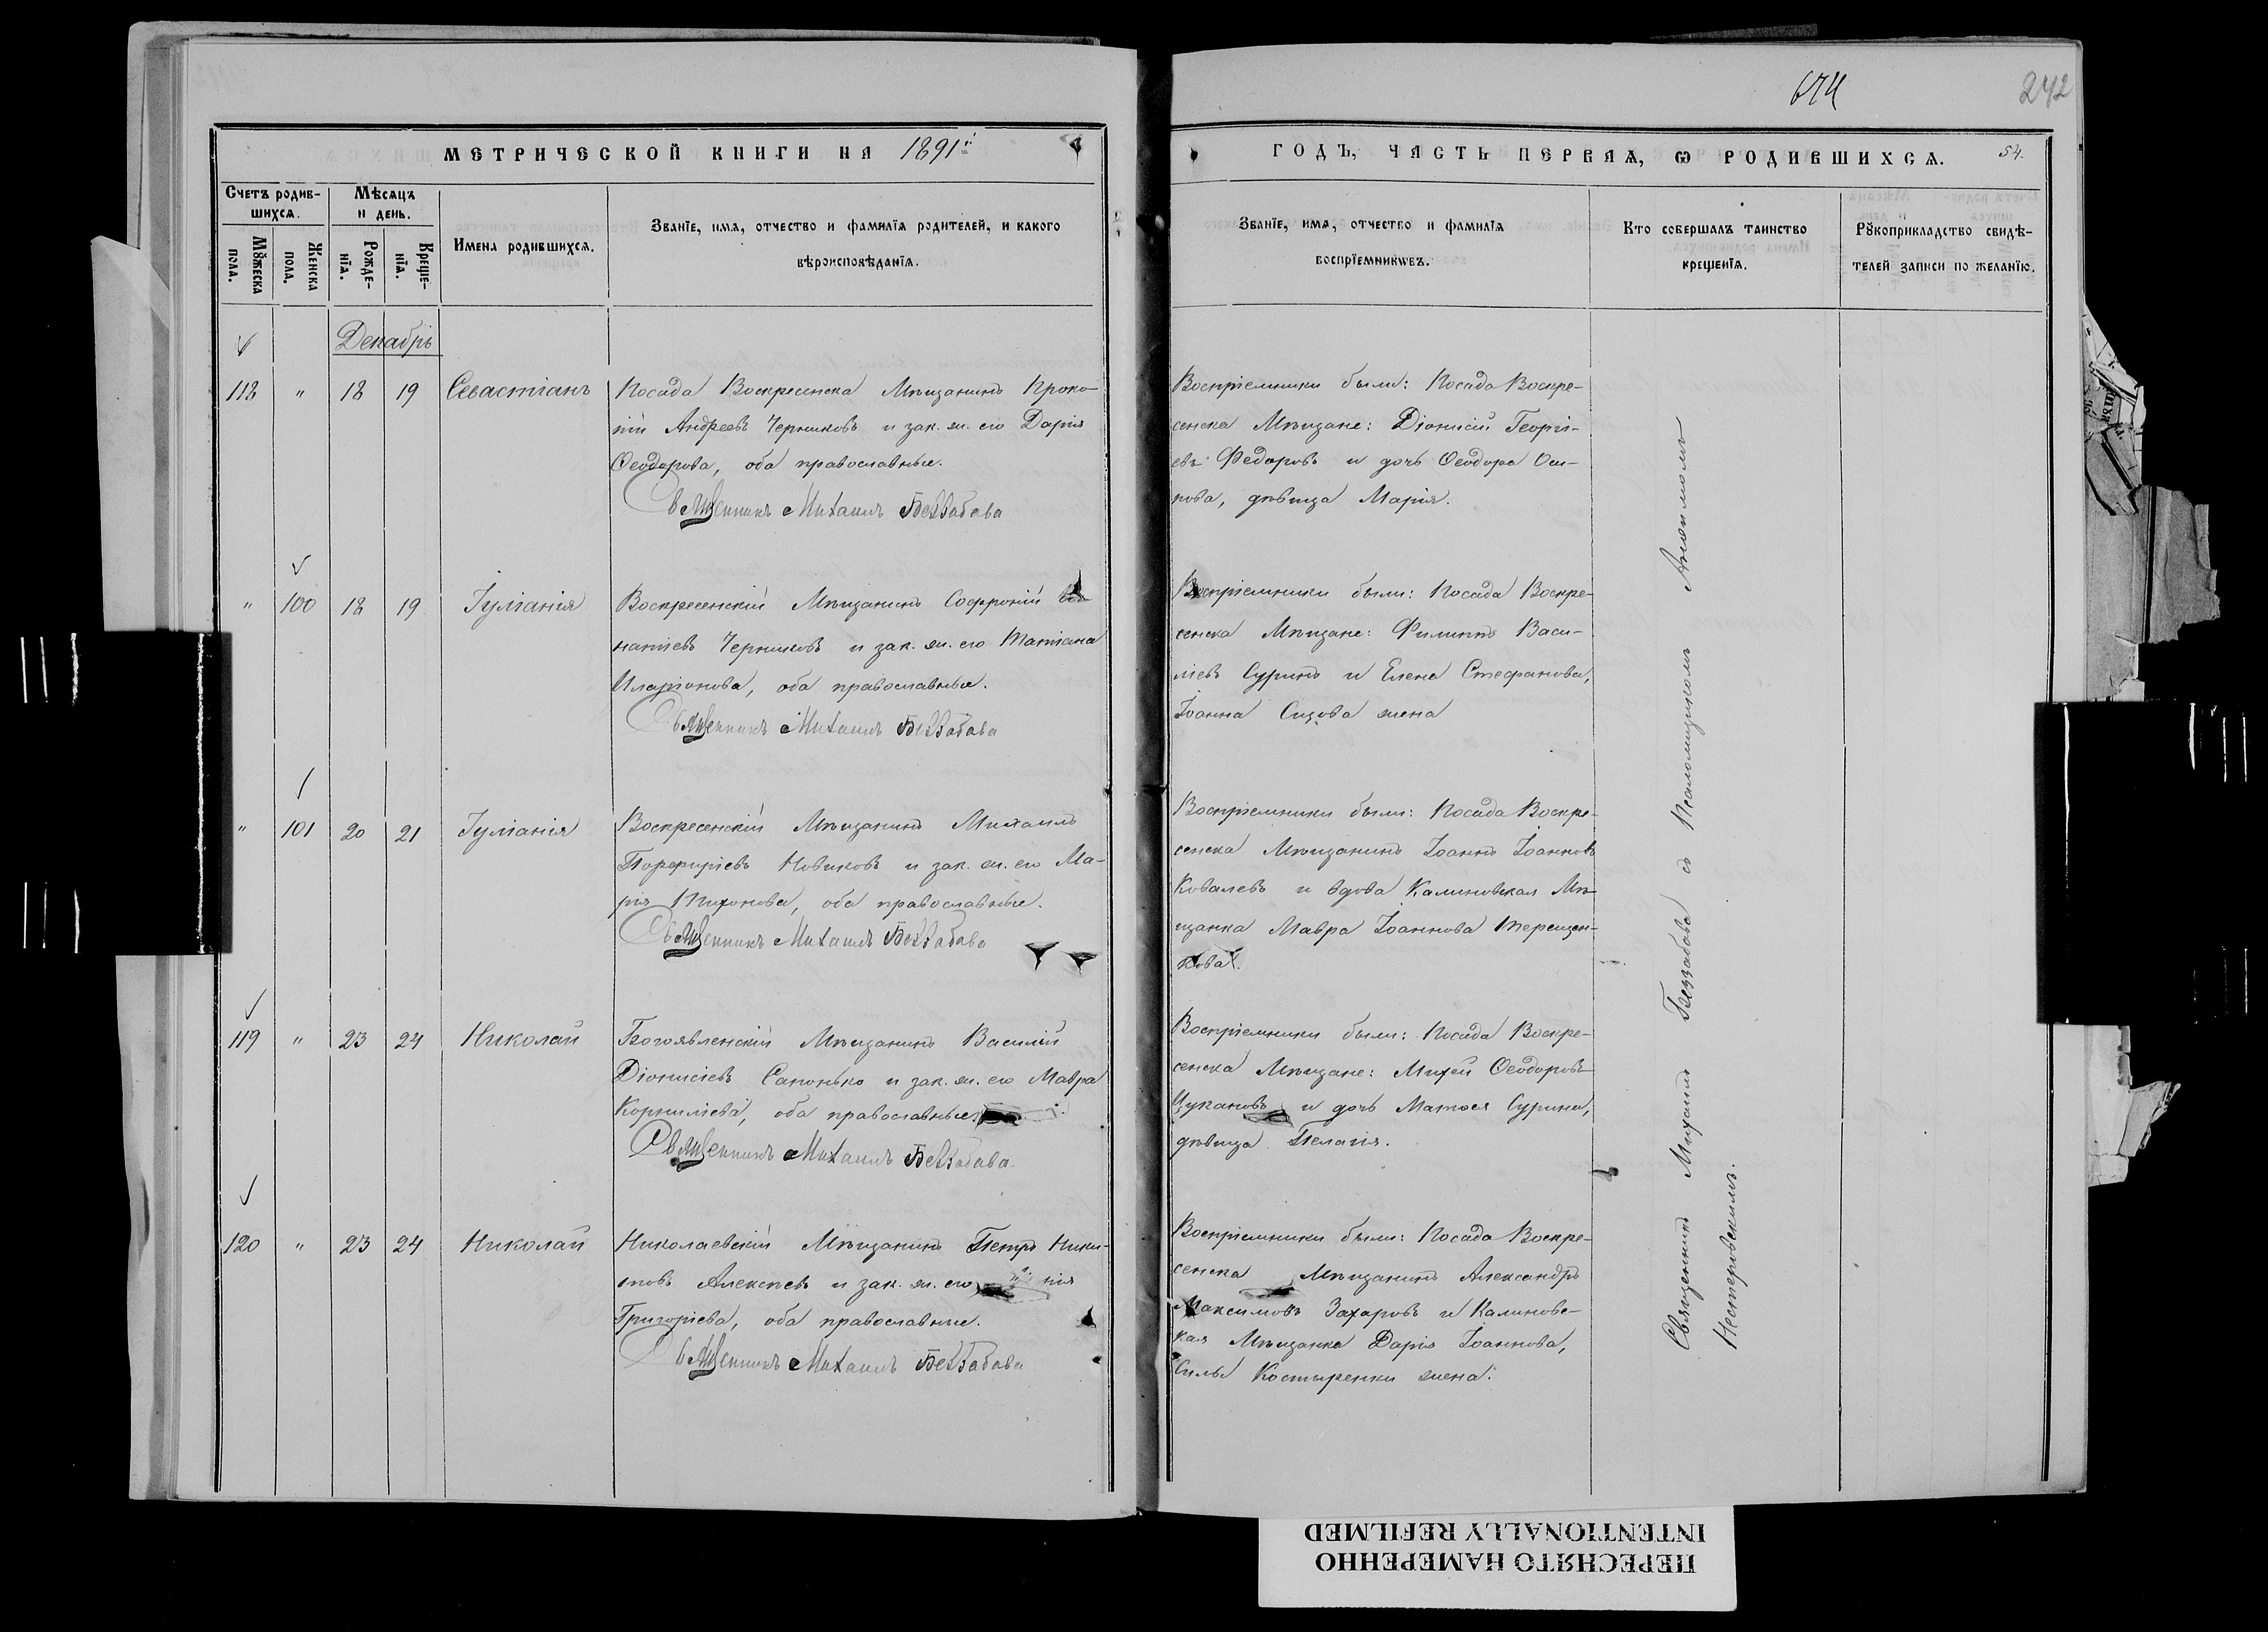 674
242
МЕТРИЧЕСКОЙ КНИГИ НА 1891й
ГОДЪ, ЧАСТЬ ПЕРВАѦ, Ѡ РОДИВШИХСѦ.
54.
Счетъ родив-
шихсѧ.
Мѣсяцъ
и день.
Мꙋжеска
пола.
Женска
пола.
Рожде-
нїѧ.
Креще-
нїѧ.
Имена родившихсѧ.
Званїе, имѧ, отчество и фамилїѧ родителей, и какого
вѣроисповѣданїѧ.
Званїе, имѧ, отчество и фамилїѧ
воспрїемникѡвъ.
Кто совершалъ таинство
крещенїѧ.
Рꙋкоприкладство свидѣ-
телей записи по желанїю.
Декабрь
118 " 18 19 Севастіанъ
Посада Воскресенска Мѣщанинъ Проко-
пій Андреевъ Черниковъ и зак. ж. его Дарія
Ѳеодорова, оба православные.
Священникъ Михаилъ Беззабава
Воспріемники были: Посада Воскре-
сенска Мѣщане: Діонисій Георгі-
евъ Федоровъ и дочь Ѳеодора Оси-
пова, дѣвица Марія.
" 100 18 19 Іуліанія
Воскресенскій Мѣщанинъ Софроній
натіевъ Черниковъ и зак. ж. его Татіана
Иларіонова, оба православные.
Священникъ Михаилъ Беззабава
Воспріемники были: Посада Воскре-
сенска Мѣщане: Филиппъ Васи-
ліевъ Суринъ и Елена Стефанова,
Іоанна Сизова жена
" 101 20 21 Іуліанія
Воскресенскій Мѣщанинъ Михаилъ
Порфиріевъ Новиковъ и зак. ж. его Ма-
рія Тихонова, оба православные.
Священникъ Михаилъ Беззабава
Воспріемники были: Посада Воскре-
сенска Мѣщанинъ Іоаннъ Іоанновъ
Ковалевъ и вдова Калиновская Мѣ-
щанка Мавра Іоаннова Терещен-
кова.
119 " 23 24 Николай
Богоявленскій Мѣщанинъ Василій
Діонисіевъ Сапонько и зак. ж. его Мавра
Корниліева, оба православные.
Священникъ Михаилъ Беззабава
Воспріемники были: Посада Воскре-
сенска Мѣщане: Михей Ѳеодоровъ
Цукановъ и дочь Матѳея Сурина,
дѣвица Пелагія.
120 " 23 24 Николай
Николаевскій Мѣщанинъ Петръ Ники-
товъ Алексѣевъ и зак. ж. его нія
Григоріева, оба православные.
Священникъ Михаилъ Беззабава
Воспріемники были: Посада Воскре-
сенска Мѣщанинъ Александръ
Максимовъ Захаровъ и Калиновс-
кая Мѣщанка Дарія Іоаннова,
Силы Костыренки жена.
Священникъ Михаилъ Беззабава съ Псаломщикомъ
Нестеровскимъ.
ПЕРЕСНЯТО НАМЕРЕННО
INTENTIONALLY REFILMED